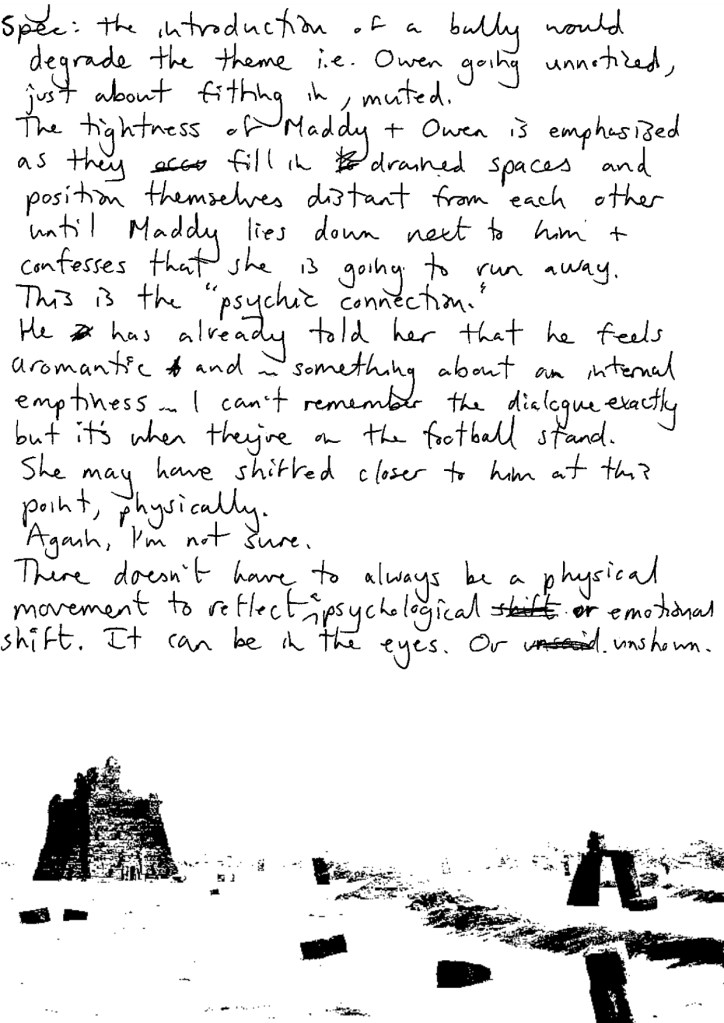 Spec: the introduction of a bully would
degrade the theme i.e. Owen going unnoticed,
just about fitting in, muted.
The tightness of Maddy + Owen is emphasized
as they fill in drained spaces and
position themselves distant from each other
until Maddy lies down next to him +
confesses that she is going to run away.
This is the "psychic connection."
He has already told her that he feels
aromantic and ~ something about an internal
emptiness ~ I can't remember the dialogue exactly
but it's when they're on the football stand.
She may have shifted closer to him at this
point, physically.
Again, I'm not sure.
There doesn't have to always be a physical
movement to reflect psychological shift or emotional
shift. It can be in the eyes. Or unsaid. unshown.